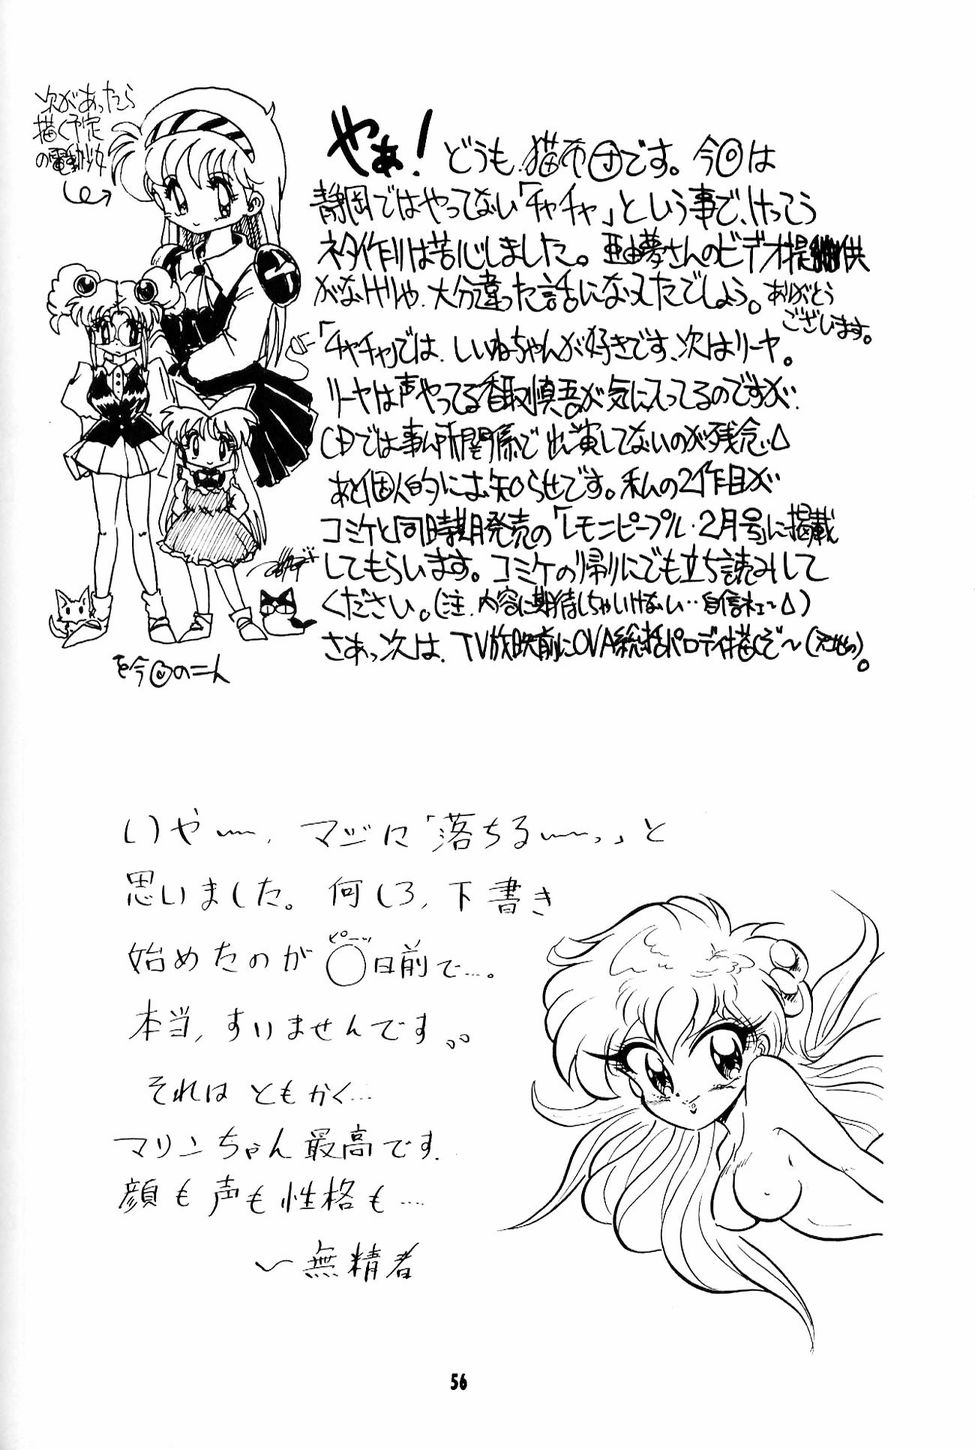 次があったら
描く予定
の電動少女
やあ!
どうも、猫布団です。今回は
静岡ではやってない「チャチャ」という事で、けっこう
ネタ作りは苦心しました。亜由夢さんのビデオ提供
がなけりゃ、大分違った話になってたでしょう。ありがとう
ございます。
「チャチャ」では、しいねちゃんが好きです、次はリーヤ。
リーヤは声やってる香取慎吾が気に入ってるのですが、
CDでは事ム所関係で出演してないのが残念…
あと個人的にはお知らせです。私の2作目が
コミケと同時期発売の「レモンピープル・2月号」に掲載
してもらいます。コミケの帰りにでも立ち読みして
ください。(注.内容に期待しちゃいけない…自信ネェ〜)
さあっ次は、TV放映前にOVA総括パロディ描くぞ〜
いや〜、マジに「落ちる〜っ」と
思いました。何しろ、下書き
始めたのが ピーッ ◯日前で…。
本当、すいませんです。。
それはともかく…
マリンちゃん最高です.
顔も声も性格も…
〜無精者
56